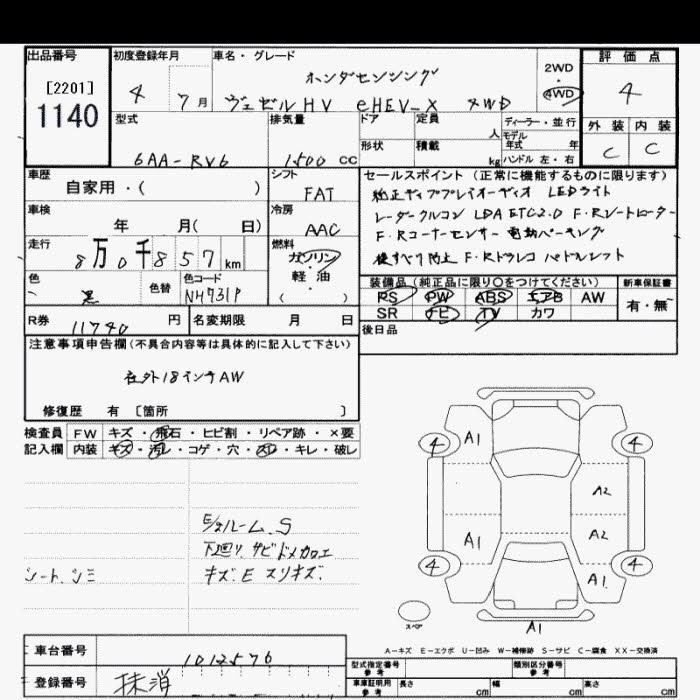 出品番号 初度登録年月 車名・グレード 評価点
[2201] 1140
4 7月 ホンダセンシング 2WD・4WD 4
ヴェゼルHV eHEV-X 4WD
型式 排気量 ドア 定員 人 ディーラー・並行 外装 内装
形状 積載 kg モデル年式 年 ハンドル 左・右
6AA-RV6 1500 CC C C
車歴 シフト セールスポイント(正常に機能するものに限ります)
自家用・( ) FAT 純正ディスプレイオーディオ LEDライト
車検 冷房 レーダークルコン LDA ETC2.0 F・Rシートヒーター
年 月( 日) AAC F・Rコーナーセンサー 電動パーキング
走行 燃料 横すべり防止 F・Rドラレコ パドルシフト
8万0千857km ガソリン・軽油・( )
色 色替 色コード 装備品(純正品に限り○をつけてください) 新車保証書
黒 NH731P PS PW ABS エアB AW 有・無
SR ナビ TV カワ
R券 11740 円 名変期限 月 日 後日品
注意事項申告欄(不具合内容等は具体的に記入して下さい)
社外18インチAW
修復歴 有 〔箇所 〕
検査員 FW キズ・飛石・ヒビ割・リペア跡・×要
記入欄 内装 キズ・汚レ・コゲ・穴・スレ・キレ・破レ
4 A1 4
A2
A1 A2
4 A1 4
A1
スペア
E/gルーム S
下廻り サビドメカロエ
シート シミ キズ.E スリキズ.
A-キズ E-エクボ U-凹み W-補修跡 S-サビ C-腐食 XX-交換済
車台番号 1012576
登録番号 抹消
型式指定番号 参考 類別区分番号 参考
車庫証明用 参考 長さ cm 幅 cm 高さ cm